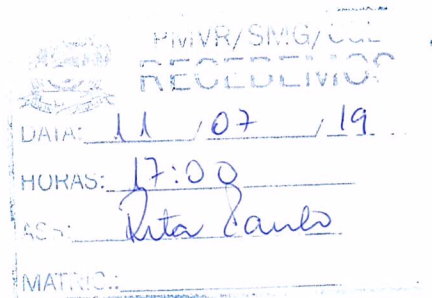 PMVR/SMG/CGL
RECEBEMOS
DATA: 11 / 07 / 19
HORAS: 17:00
ASS.: Rita Paulo
MATRIC.: